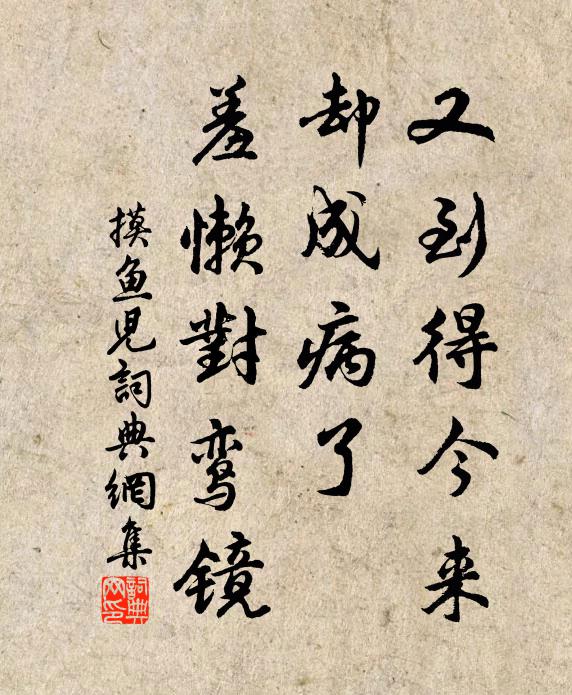 又到得今来
却成病了
羞懒對鸾镜
摸鱼児詞典網集
詞典網印